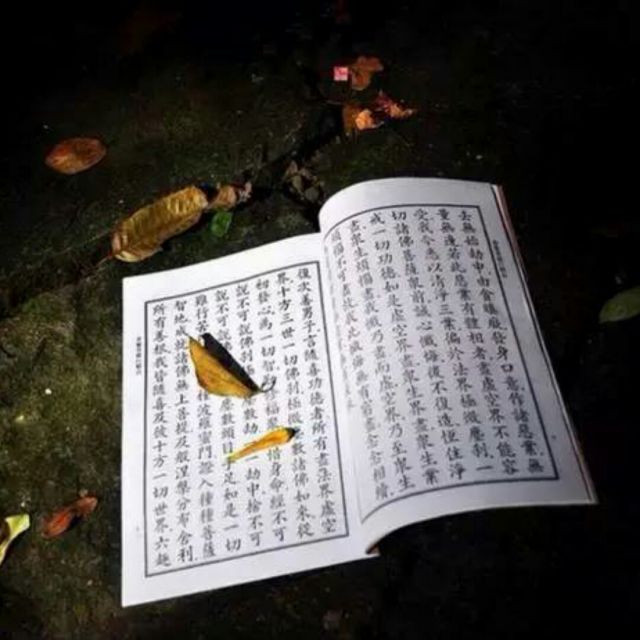 去無始劫中由貪瞋癡發身口意作諸惡業無
量無邊若此惡業有體相者盡虛空界不能容
受我今悉以清淨三業徧於法界極微塵剎一
切諸佛菩薩眾前誠心懺悔後不復造恆住淨
戒一切功德如是虛空界盡眾生界盡眾生業
盡眾生煩惱盡我懺乃盡而虛空界乃至眾生
煩惱不可盡故我此懺悔無有窮盡念念相續
復次善男子言隨喜功德者所有盡法界虛空
界十方三世一切佛剎極微塵數諸佛如來從
初發心為一切智福惜身命經不可
說不可說佛剎數劫劫中捨不可
說不塵數頭目手足如是一切
難行種波羅蜜門證入種種菩薩
智地成就諸佛無上菩提及般涅槃分布舍利
所有善根我皆隨喜及彼十方一切世界六趣